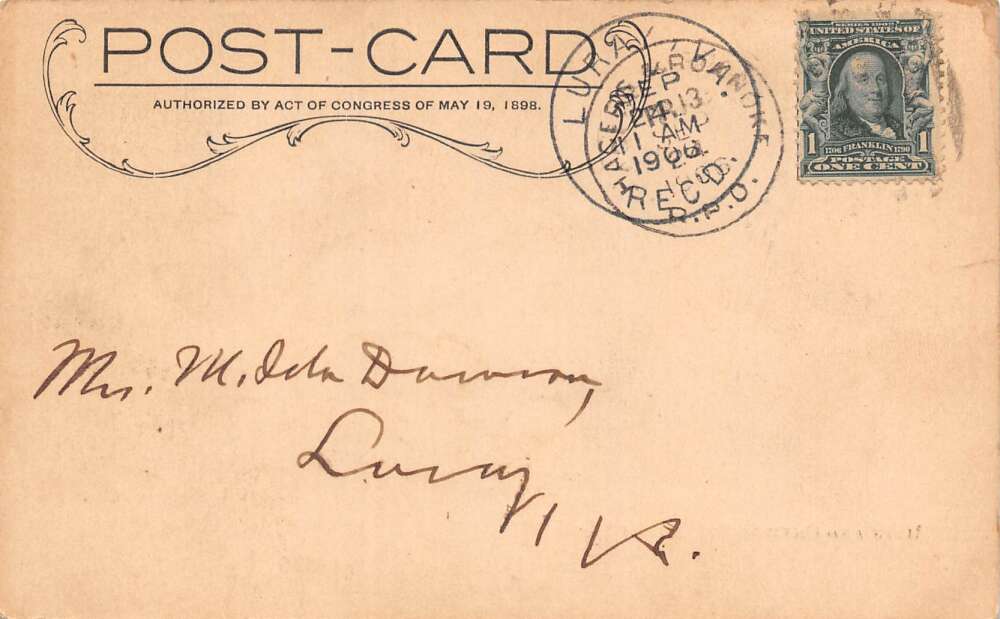 POST-CARD
AUTHORIZED BY ACT OF CONGRESS OF MAY 19, 1898.
LURAY, VA.
SEP
13
11 AM
1906
REC'D.
HAGERS. & ROANOKE
R.P.O.
SERIES 1902
UNITED STATES OF
AMERICA
1706 FRANKLIN 1790
POSTAGE
1 ONE CENT 1
Mrs. M. Ida Dawson,
Luray,
Va.